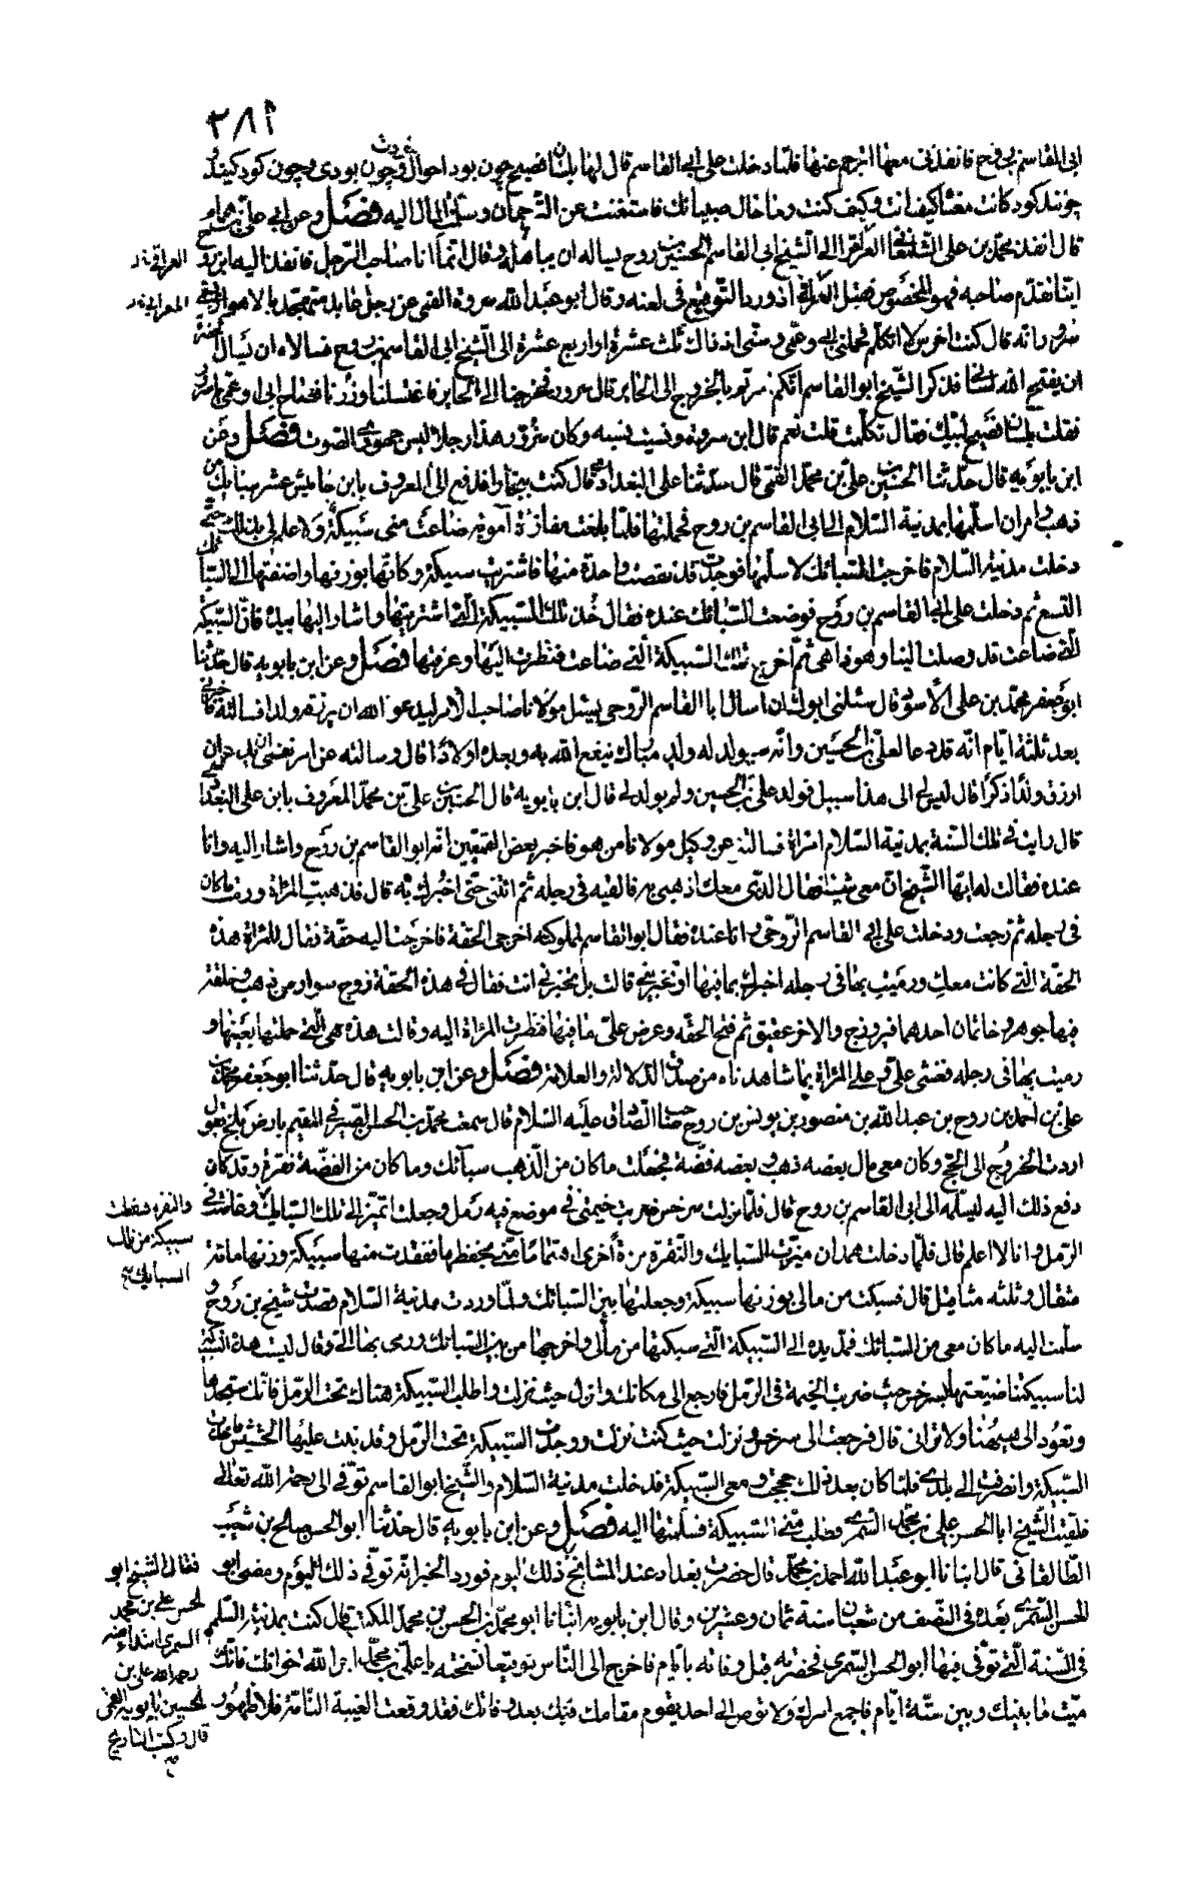 ٣٨١
ابى القاسم بن روح فانفذنى معها اترجم عنها فلما دخلت على ابى القاسم قال لها بلسان فصيح چون بود احوال وچون بودى وچون كودكيند
كانت معناه كيف انت وكيف كنت وما حال صبيانك فاستغنت عن الترجمان وسلمت المال اليه فصل وعن ابى على بن همام
قال انفذ محمد بن على الشلمغانى العزاقرى الى الشيخ ابى القاسم الحسين بن روح يساله ان يباهله وقال انما انا صاحب الرجل فانفذ اليه ابن روح
اينا تقدم صاحبه فهو المخصوص فقتل العزاقرى اذ ورد التوقيع فى لعنه وقال ابو عبد الله سورة القمى عن رجل عابد متهجد بالاهواز يسمى
سرور انه قال كنت اخرس لا اتكلم فحملنى ابى وعمى وسنى اذ ذاك ثلث عشرة او اربع عشرة الى الشيخ ابى القاسم بن روح فسالاه ان يسال الحضرة
ان يفتح الله لسانى فذكر الشيخ ابو القاسم انكم امرتم بالخروج الى الحاير قال سرور فخرجنا الى الحاير فاغتسلنا وزرنا فصاح بى ابى او عمى يا سرور
فقلت بلسان فصيح لبيك فقال تكلمت قلت نعم قال ابن سورة ونسيت نسبه وكان سرور هذا رجلا ليس جهورى الصوت فصل وعن
ابن بابويه قال حدثنا الحسين بن على بن محمد القمى قال حدثنا على البغدادى قال كنت ببخارا فدفع الى المعروف بابن جاوشير عشر سبائك من
ذهب وامرنى ان اسلمها بمدينة السلام الى ابى القاسم بن روح فحملتها فلما بلغت مفازة آمويه ضاعت منى سبيكة ولا علم لى بذلك حتى
دخلت مدينة السلام فاخرجت السبائك لاسلمها فوجدت قد نقصت واحدة منها فاشتريت سبيكة وكانها بوزنها واضفتها الى السبائك
التسع ثم دخلت على ابى القاسم بن روح فوضعت السبائك عنده فقال خذ تلك السبيكة التى اشتريتها واشار اليها بيده فان السبيكة
التى ضاعت قد وصلت الينا وهو ذا هى ثم اخرج تلك السبيكة التى ضاعت فنظرت اليها وعرفتها فصل وعن ابن بابويه قال حدثنا
ابو جعفر محمد بن على الاسود قال سئلنى ابوك ان اسال ابا القاسم الروحى يسئل مولانا صاحب الامر ليدعو الله ان يرزقه ولدا فسالته فاخبرنى
بعد ثلثة ايام انه قد دعا لعلى بن الحسين وانه سيولد له ولد مبارك ينفع الله به وبعده اولاد قال وسالته عن امر نفسى ان يدعو لى ان
ارزق ولدا ذكرا قال ليس لى الى هذا سبيل فولد على بن الحسين ولم يولد لى قال ابن بابويه قال الحسين بن على بن محمد المعروف بابن على البغدادى
قال رايت فى تلك السنة بمدينة السلام امراة فسالت عن وكيل مولانا من هو فاخبر بعض القميين انه ابو القاسم بن روح واشار اليه وانا
عنده فقالت له ايها الشيخ اى شئ معى فقال الذى معك اذهبى به فالقيه فى دجلة ثم ائتنى حتى اخبرك به قال فذهبت المراة ورمت ما كان
فى دجلة ثم رجعت ودخلت على ابى القاسم الروحى وانا عنده فقال ابو القاسم لمملوكته اخرجى الحقة فاخرجت اليه حقة فقال للمراة هذه
الحقة التى كانت معك ورميت بها فى دجلة اخبرك بما فيها او تخبرينى قالت بل تخبرنى انت فقال فى هذه الحقة زوج سوار من ذهب وحلقة
فيها جوهر وخاتمان احدهما فيروزج والاخر عقيق ثم فتح الحقة وعرض على ما فيها فنظرت المراة اليه وقالت هذه هى التى حملتها بعينها و
رميت بها فى دجلة فغشى على وعلى المراة بما شاهدناه من صدق الدلالة والعلامة فصل وعن ابن بابويه قال حدثنا ابو جعفر محمد بن
على بن احمد بن روح بن عبد الله بن منصور بن يونس بن روح صاحب مولانا الصادق عليه السلام قال سمعت محمد بن الحسن الصيرفى المقيم بارض بلخ يقول
اردت الخروج الى الحج وكان معى مال بعضه ذهب وبعضه فضة فجعلت ما كان من الذهب سبائك وما كان من الفضة نقرة وقد كان
دفع ذلك اليه ليسلمه الى ابى القاسم بن روح قال فلما نزلت سرخس ضربت خيمتى فى موضع فيه رمل وجعلت اميز تلك السبايك وغاصت فى
الرمل وانا لا اعلم قال فلما دخلت همدان ميزت السبايك والنقرة مرة اخرى اهتماما منى بحفظها ففقدت منها سبيكة وزنها مائة
مثقال وثلثه مثاقيل قال فسبكت من مالى بوزنها سبيكة وجعلتها بين السبائك ولما وردت مدينة السلام قصدت شيخ بن روح و
سلمت اليه ما كان معى من السبائك فمد يده الى السبيكة التى سبكتها من مالى واخرجها من بين السبائك ورمى بها الى وقال ليست هذه السبيكة
لنا سبيكتنا ضيعتها بسرخس حيث ضربت الخيمة فى الرمل فارجع الى مكانك وانزل حيث نزلت واطلب السبيكة هناك تحت الرمل فانك ستجدها
وتعود الى هيهنا ولا ترانى قال فرجعت الى سرخس ونزلت حيث كنت نزلت ووجدت السبيكة تحت الرمل وقد نبت عليها الحشيش فاخذت
السبيكة وانصرفت الى بلدى فلما كان بعد ذلك حججت ومعى السبيكة فدخلت مدينة السلام والشيخ ابو القاسم توفى الى رحمة الله تعالى
فلقيت الشيخ ابا الحسن على بن محمد السمرى وطلب منى السبيكة فسلمتها اليه فصل وعن ابن بابويه قال حدثنا ابو الحسن صالح بن شعيب
الطالقانى قال انبانا ابو عبد الله احمد بن محمد قال حضرت بغداد عند المشايخ ذلك اليوم فورد الخبر انه توفى ذلك اليوم ومضى ابو
الحسن السمرى بعده فى النصف من شعبان سنة ثمان وعشرين وقال ابن بابويه انبانا ابو محمد بن الحسن بن محمد المكتب قال كنت بمدينة السلم
فى السنة التى توفى فيها ابو الحسن السمرى فحضرته قبل وفاته بايام فاخرج الى الناس توقيعا نسخته يا على بن محمد اجر الله اخوانك فانك
ميت ما بينك وبين ستة ايام فاجمع امرك ولا توص الى احد يقوم مقامك فيك بعد وفاتك فقد وقعت الغيبة التامة فلا ظهور
العزاقرى
والنقرة فسقطت
سبيكة من تلك
السبايك
فقال الشيخ ابو
الحسن على بن محمد
السمرى ابتداء منه
رحم الله على بن
الحسين بن بابويه القمى
قال وكتب التاريخ